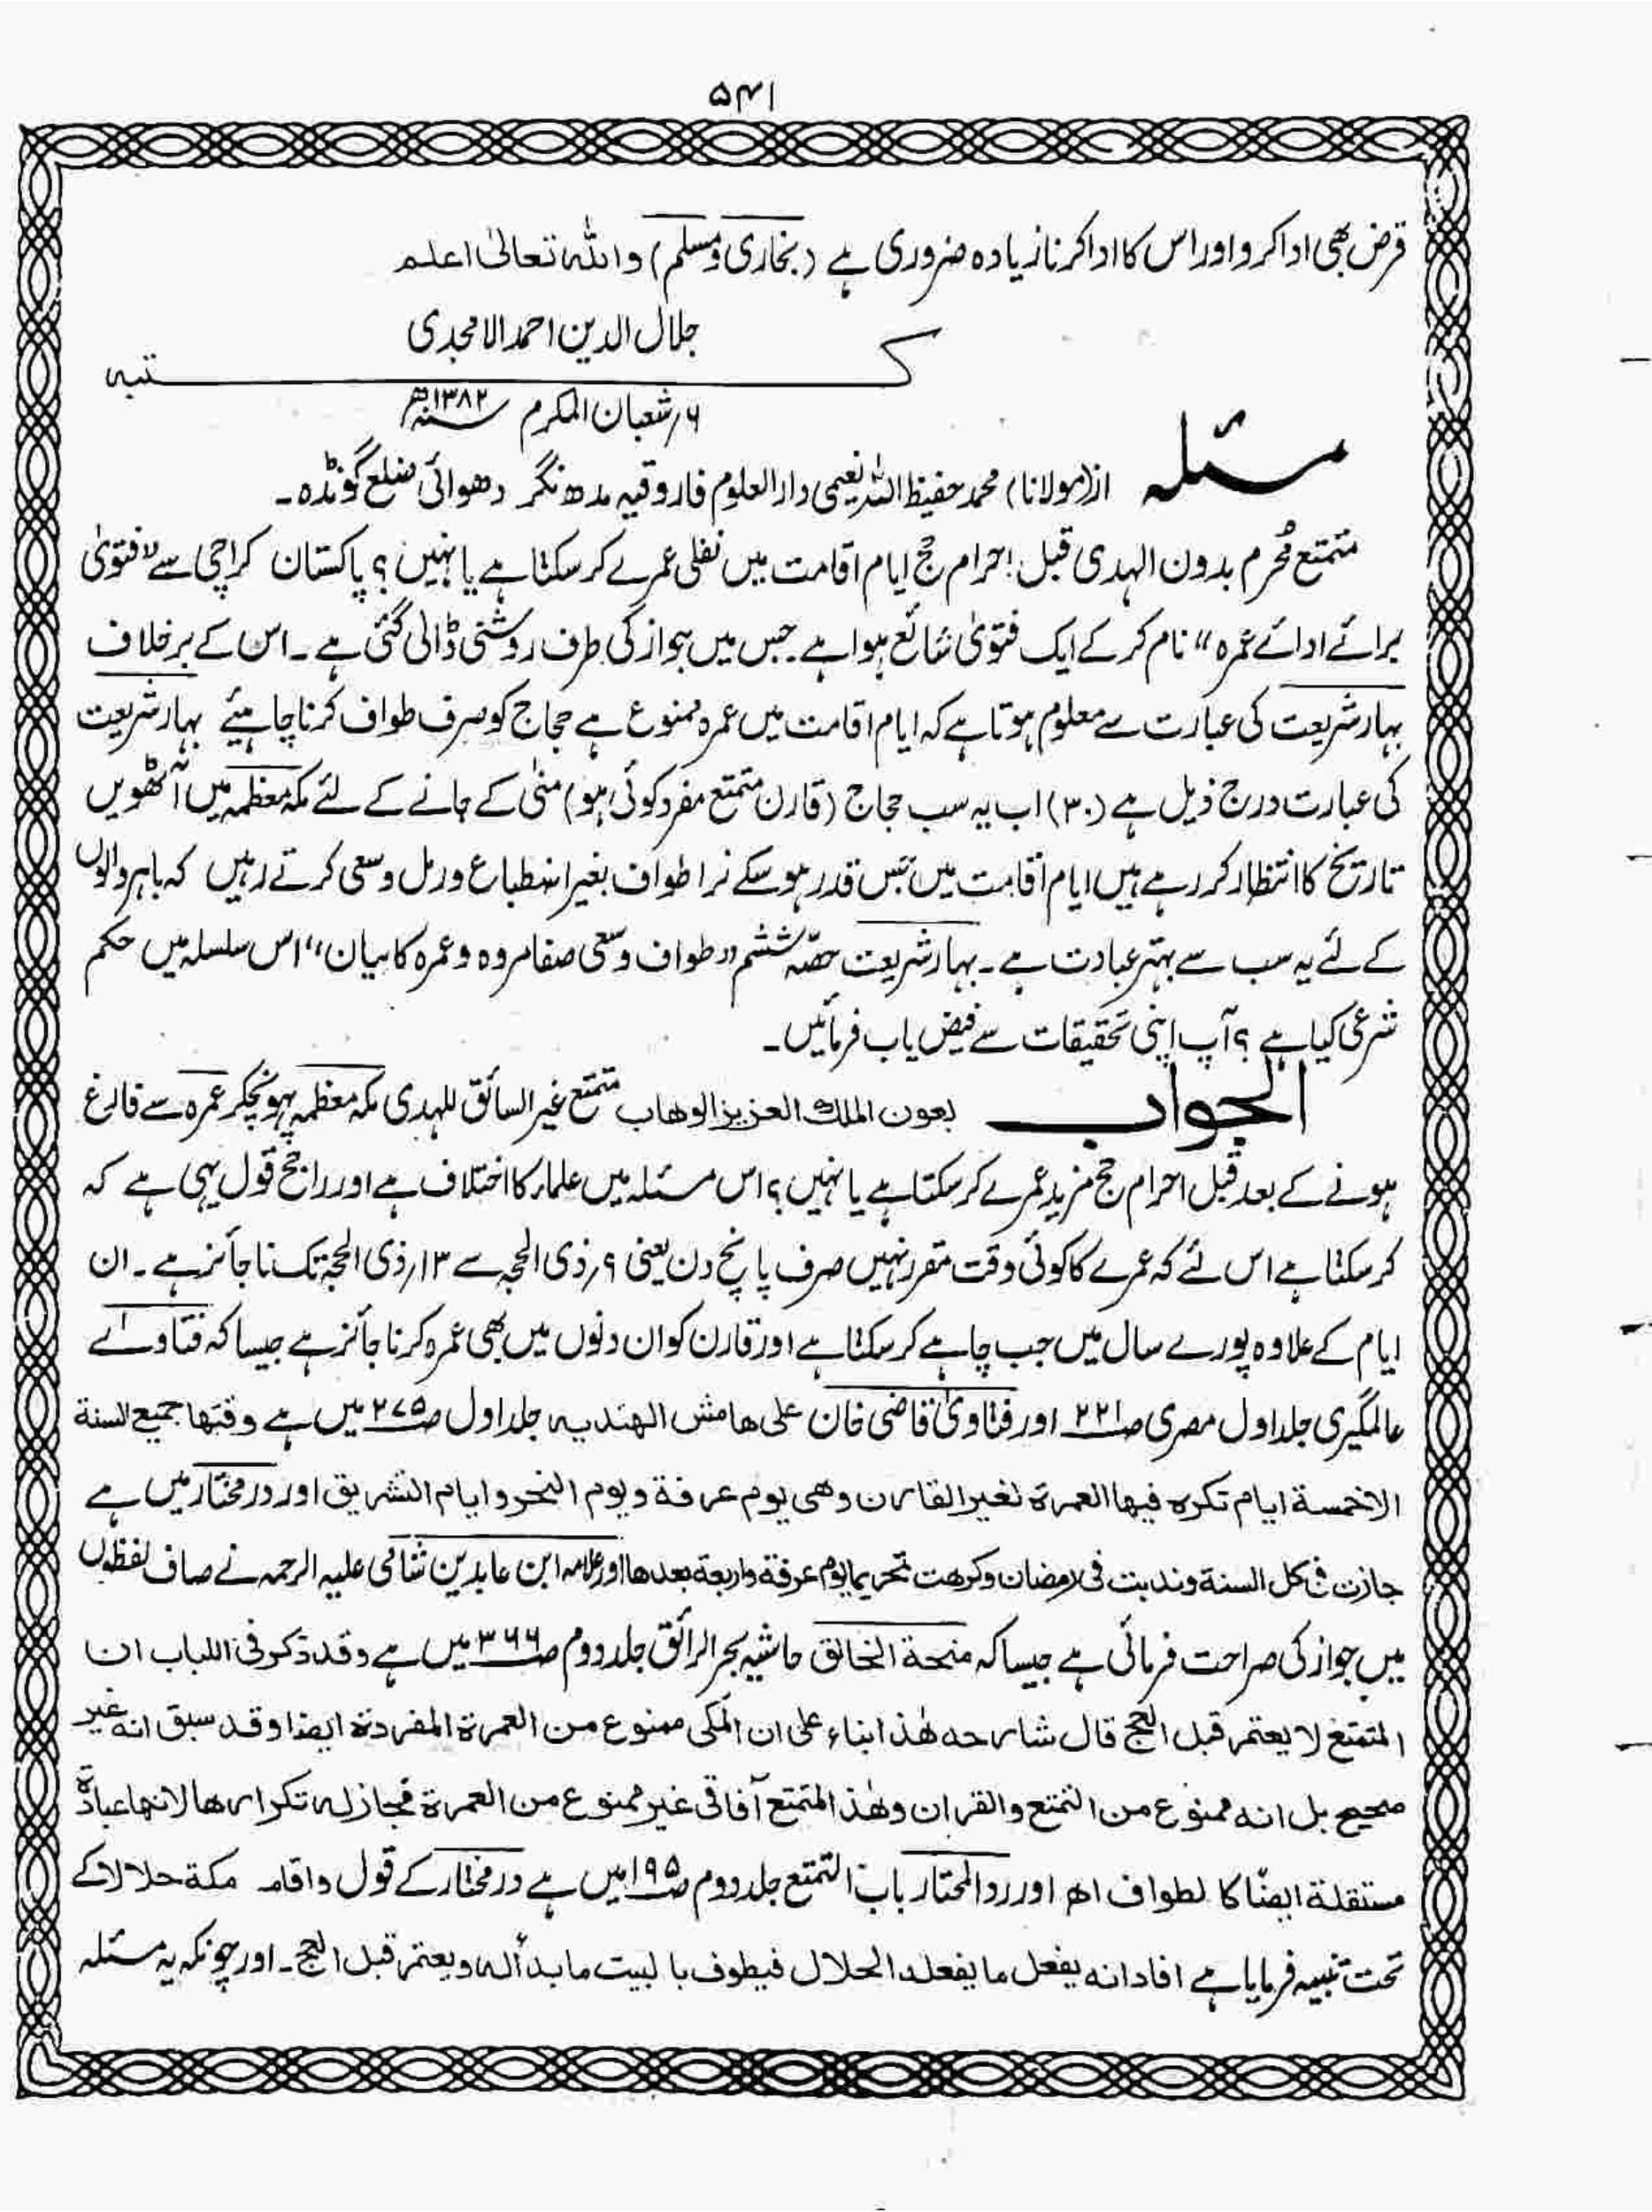 ۵۴۱
قرض بھی ادا کرو اور اس کا ادا کرنا زیادہ ضروری ہے (بخاری ومسلم) واللہ تعالیٰ اعلم
جلال الدین احمد الامجدی
کتبہ
۶؍شعبان المکرم ۱۳۸۲ھ
مسئلہ از (مولانا) محمد حفیظ اللہ نعیمی دارالعلوم فاروقیہ مدھ نگر دھوائی ضلع گونڈہ۔
متمتع مُحرم بدون الہدی قبل احرام حج ایام اقامت میں نفلی عمرے کر سکتا ہے یا نہیں؟ پاکستان کراچی سے "فتویٰ
برائے ادائے عمرہ" نام کر کے ایک فتویٰ شائع ہوا ہے۔ جس میں جواز کی طرف روشنی ڈالی گئی ہے۔ اس کے برخلاف
بہار شریعت کی عبارت سے معلوم ہوتا ہے کہ ایام اقامت میں عمرہ ممنوع ہے حجاج کو صرف طواف کرنا چاہیئے بہار شریعت
کی عبارت درج ذیل ہے (۳۰) اب یہ سب حجاج (قارن متمتع مفرد کوئی ہو) منیٰ کے جانے کے لئے مکہ معظمہ میں آٹھویں
تاریخ کا انتظار کر رہے ہیں ایام اقامت میں جس قدر ہو سکے نرا طواف بغیر اضطباع ورمل وسعی کرتے رہیں کہ باہر والوں
کے لئے یہ سب سے بہتر عبادت ہے۔ بہار شریعت حصّہ ششم "طواف وسعی صفا مروہ وعمرہ کا بیان" اس سلسلہ میں حکم
شرعی کیا ہے؟ آپ اپنی تحقیقات سے فیض یاب فرمائیں۔
الجواب بعون الملک العزیز الوھاب متمتع غیر السائق للہدی مکہ معظمہ پہونچکر عمرہ سے فارغ
ہونے کے بعد قبل احرام حج مزید عمرے کر سکتا ہے یا نہیں؟ اس مسئلہ میں علماء کا اختلاف ہے اور راجح قول یہی ہے کہ
کر سکتا ہے اس لئے کہ عمرے کا کوئی وقت مقرر نہیں صرف پانچ دن یعنی ۹؍ذی الحجہ سے ۱۳؍ذی الحجہ تک ناجائز ہے۔ ان
ایام کے علاوہ پورے سال میں جب چاہے کر سکتا ہے اور قارن کو ان دنوں میں بھی عمرہ کرنا جائز ہے جیسا کہ فتاوے
عالمگیری جلد اول مصری ص۲۲۱ اور فتاویٰ قاضی خان علی ھامش الھندیہ جلد اول ص۲۷۵ میں ہے وقتھا جمیع السنۃ
الاخمسۃ ایام تکرہ فیھا العمرۃ لغیر القارن وھی یوم عرفۃ ویوم النحر وایام التشریق اور درمختار میں ہے
جازت فی کل السنۃ وندبت فی رمضان وکرھت تحریما یوم عرفۃ واربعۃ بعدھا اور علامہ ابن عابدین شامی علیہ الرحمہ نے صاف لفظوں
میں جواز کی صراحت فرمائی ہے جیسا کہ منحۃ الخالق حاشیہ بحر الرائق جلد دوم ص۳۶۶ میں ہے وقد ذکر فی اللباب ان
المتمتع لا یعتمر قبل الحج قال شارحہ ھٰذا بناء علی ان المکی ممنوع من العمرۃ المفردۃ ایضا وقد سبق انہ غیر
صحیح بل انہ ممنوع من التمتع والقران وھٰذا المتمتع آفاقی غیر ممنوع من العمرۃ فجاز لہ تکرارھا لانھا عبادۃ
مستقلۃ ایضًا کا لطواف اھ اور رد المحتار باب التمتع جلد دوم ص۱۹۵ میں ہے درمختار کے قول واقام مکۃ حلالا کے
تحت تنبیہ فرمایا ہے افاد انہ یفعل ما یفعلہ الحلال فیطوف با لبیت ما بدألہ ویعتمر قبل الحج۔ اور چونکہ یہ مسئلہ